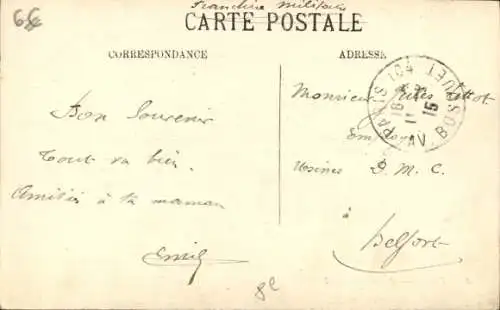 6€
Franchise Militaire
CARTE POSTALE
CORRESPONDANCE
Bon Souvenir
Tout va bien.
Amitiés à ta maman
Emile
8e
ADRESSE
PARIS 104 AV. BOSQUET
15
Monsieur Jules
Employé
Usines D. M. C.
à
Belfort